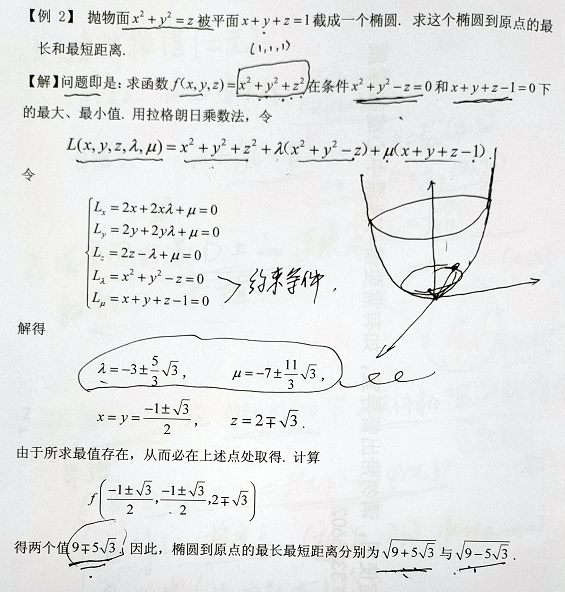 【例 2】 抛物面 x² + y² = z 被平面 x + y + z = 1 截成一个椭圆. 求这个椭圆到原点的最
(1,1,1)
长和最短距离.
【解】问题即是: 求函数 f(x, y, z) = x² + y² + z² 在条件 x² + y² − z = 0 和 x + y + z − 1 = 0 下
的最大、最小值. 用拉格朗日乘数法, 令
L(x, y, z, λ, μ) = x² + y² + z² + λ(x² + y² − z) + μ(x + y + z − 1).
令
L_x = 2x + 2xλ + μ = 0
L_y = 2y + 2yλ + μ = 0
L_z = 2z − λ + μ = 0
L_λ = x² + y² − z = 0
L_μ = x + y + z − 1 = 0
约束条件.
解得
λ = −3 ± 5/3 √3, μ = −7 ± 11/3 √3,
x = y = (−1 ± √3)/2, z = 2 ∓ √3.
由于所求最值存在, 从而必在上述点处取得. 计算
f((−1 ± √3)/2, (−1 ± √3)/2, 2 ∓ √3)
得两个值 9 ∓ 5√3, 因此, 椭圆到原点的最长最短距离分别为 √(9 + 5√3) 与 √(9 − 5√3).